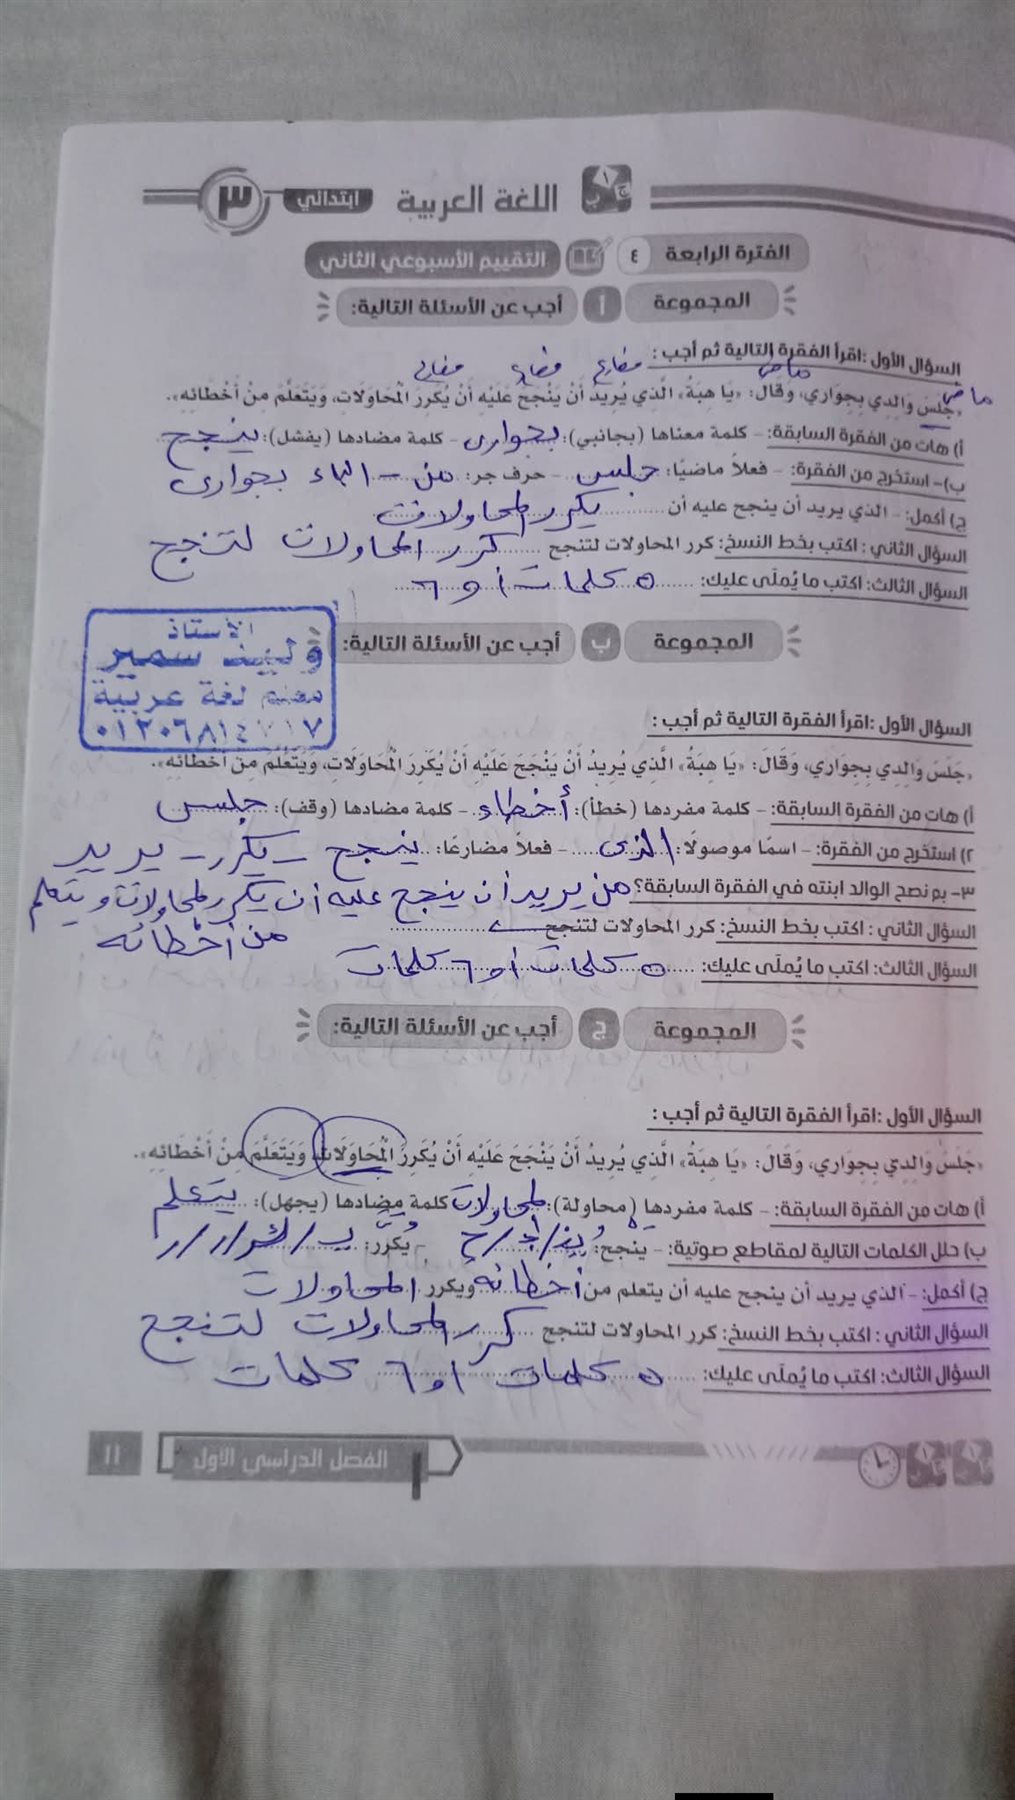 اللغة العربية ابتدائي ٣
الفترة الرابعة ٤ التقييم الأسبوعي الثاني
المجموعة أ أجب عن الأسئلة التالية:
السؤال الأول :اقرأ الفقرة التالية ثم أجب :
ماضى ماضى مضارع مضارع مضارع
«جَلَسَ وَالِدِي بِجِوَارِي، وَقَالَ: «يَا هِبَةُ، الَّذِي يُرِيدُ أَنْ يَنْجَحَ عَلَيْهِ أَنْ يُكَرِرَ الْمُحَاوَلَاتِ، وَيَتَعَلَّمَ مِنْ أَخْطَائِهِ».
أ) هات من الفقرة السابقة: - كلمة معناها (بجانبي): بجوارى - كلمة مضادها (يفشل): ينجح
ب)- استخرج من الفقرة: - فعلاً ماضيًا: جلس - حرف جر: من - الباء بجوارى
ج) أكمل: - الذي يريد أن ينجح عليه أن يكرر المحاولات
السؤال الثاني : اكتب بخط النسخ: كرر المحاولات لتنجح كرر المحاولات لتنجح
السؤال الثالث: اكتب ما يُملَى عليك: ٥ كلمات أو ٦
الأستاذ
وليد سمير
معلم لغة عربية
المجموعة ب أجب عن الأسئلة التالية:
السؤال الأول :اقرأ الفقرة التالية ثم أجب :
«جَلَسَ وَالِدِي بِجِوَارِي، وَقَالَ: «يَا هِبَةُ، الَّذِي يُرِيدُ أَنْ يَنْجَحَ عَلَيْهِ أَنْ يُكَرِرَ الْمُحَاوَلَاتِ، وَيَتَعَلَّمَ مِنْ أَخْطَائِهِ».
أ) هات من الفقرة السابقة: - كلمة مفردها (خطأ): أخطاء - كلمة مضادها (وقف): جلس
٢) استخرج من الفقرة: - اسمًا موصولًا: الذى - فعلاً مضارعًا: ينجح - يكرر - يريد
٣- بم نصح الوالد ابنته في الفقرة السابقة؟ من يريد أن ينجح عليه أن يكرر المحاولات ويتعلم
من أخطائه
السؤال الثاني : اكتب بخط النسخ: كرر المحاولات لتنجح
السؤال الثالث: اكتب ما يُملَى عليك: ٥ كلمات أو ٦ كلمات
المجموعة ج أجب عن الأسئلة التالية:
السؤال الأول :اقرأ الفقرة التالية ثم أجب :
«جَلَسَ وَالِدِي بِجِوَارِي، وَقَالَ: «يَا هِبَةُ، الَّذِي يُرِيدُ أَنْ يَنْجَحَ عَلَيْهِ أَنْ يُكَرِرَ الْمُحَاوَلَاتِ، وَيَتَعَلَّمَ مِنْ أَخْطَائِهِ».
أ) هات من الفقرة السابقة: - كلمة مفردها (محاولة): المحاولات كلمة مضادها (يجهل): يتعلم
ب) حلل الكلمات التالية لمقاطع صوتية: - ينجح: - يُكرر:
ج) أكمل: - الذي يريد أن ينجح عليه أن يتعلم من أخطائه ويكرر المحاولات
السؤال الثاني : اكتب بخط النسخ: كرر المحاولات لتنجح كرر المحاولات لتنجح
السؤال الثالث: اكتب ما يُملَى عليك: ٥ كلمات أو ٦ كلمات
الفصل الدراسي الأول ١١